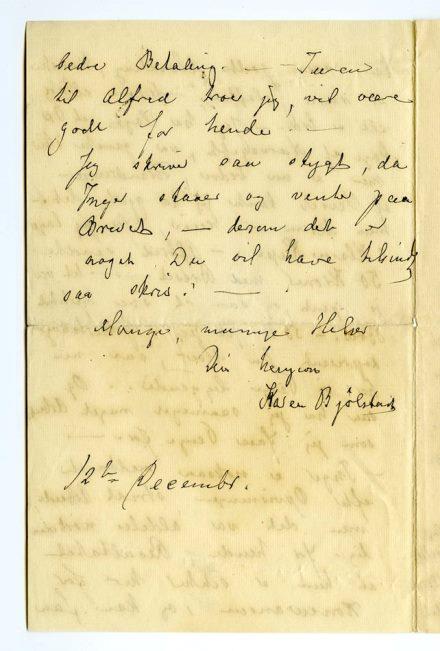 bedre Betaling. — Turen
til Alfred troer jeg, vil være
godt for hende —
Jeg skriver saa stygt, da
Inger staaer og venter paa
Brevet, — dersom det er
noget Du vil have tilsendt,
saa skriv! —
Mange, mange Hilsner
Din hengivne
Karen Bjølstad
12te Decembr.